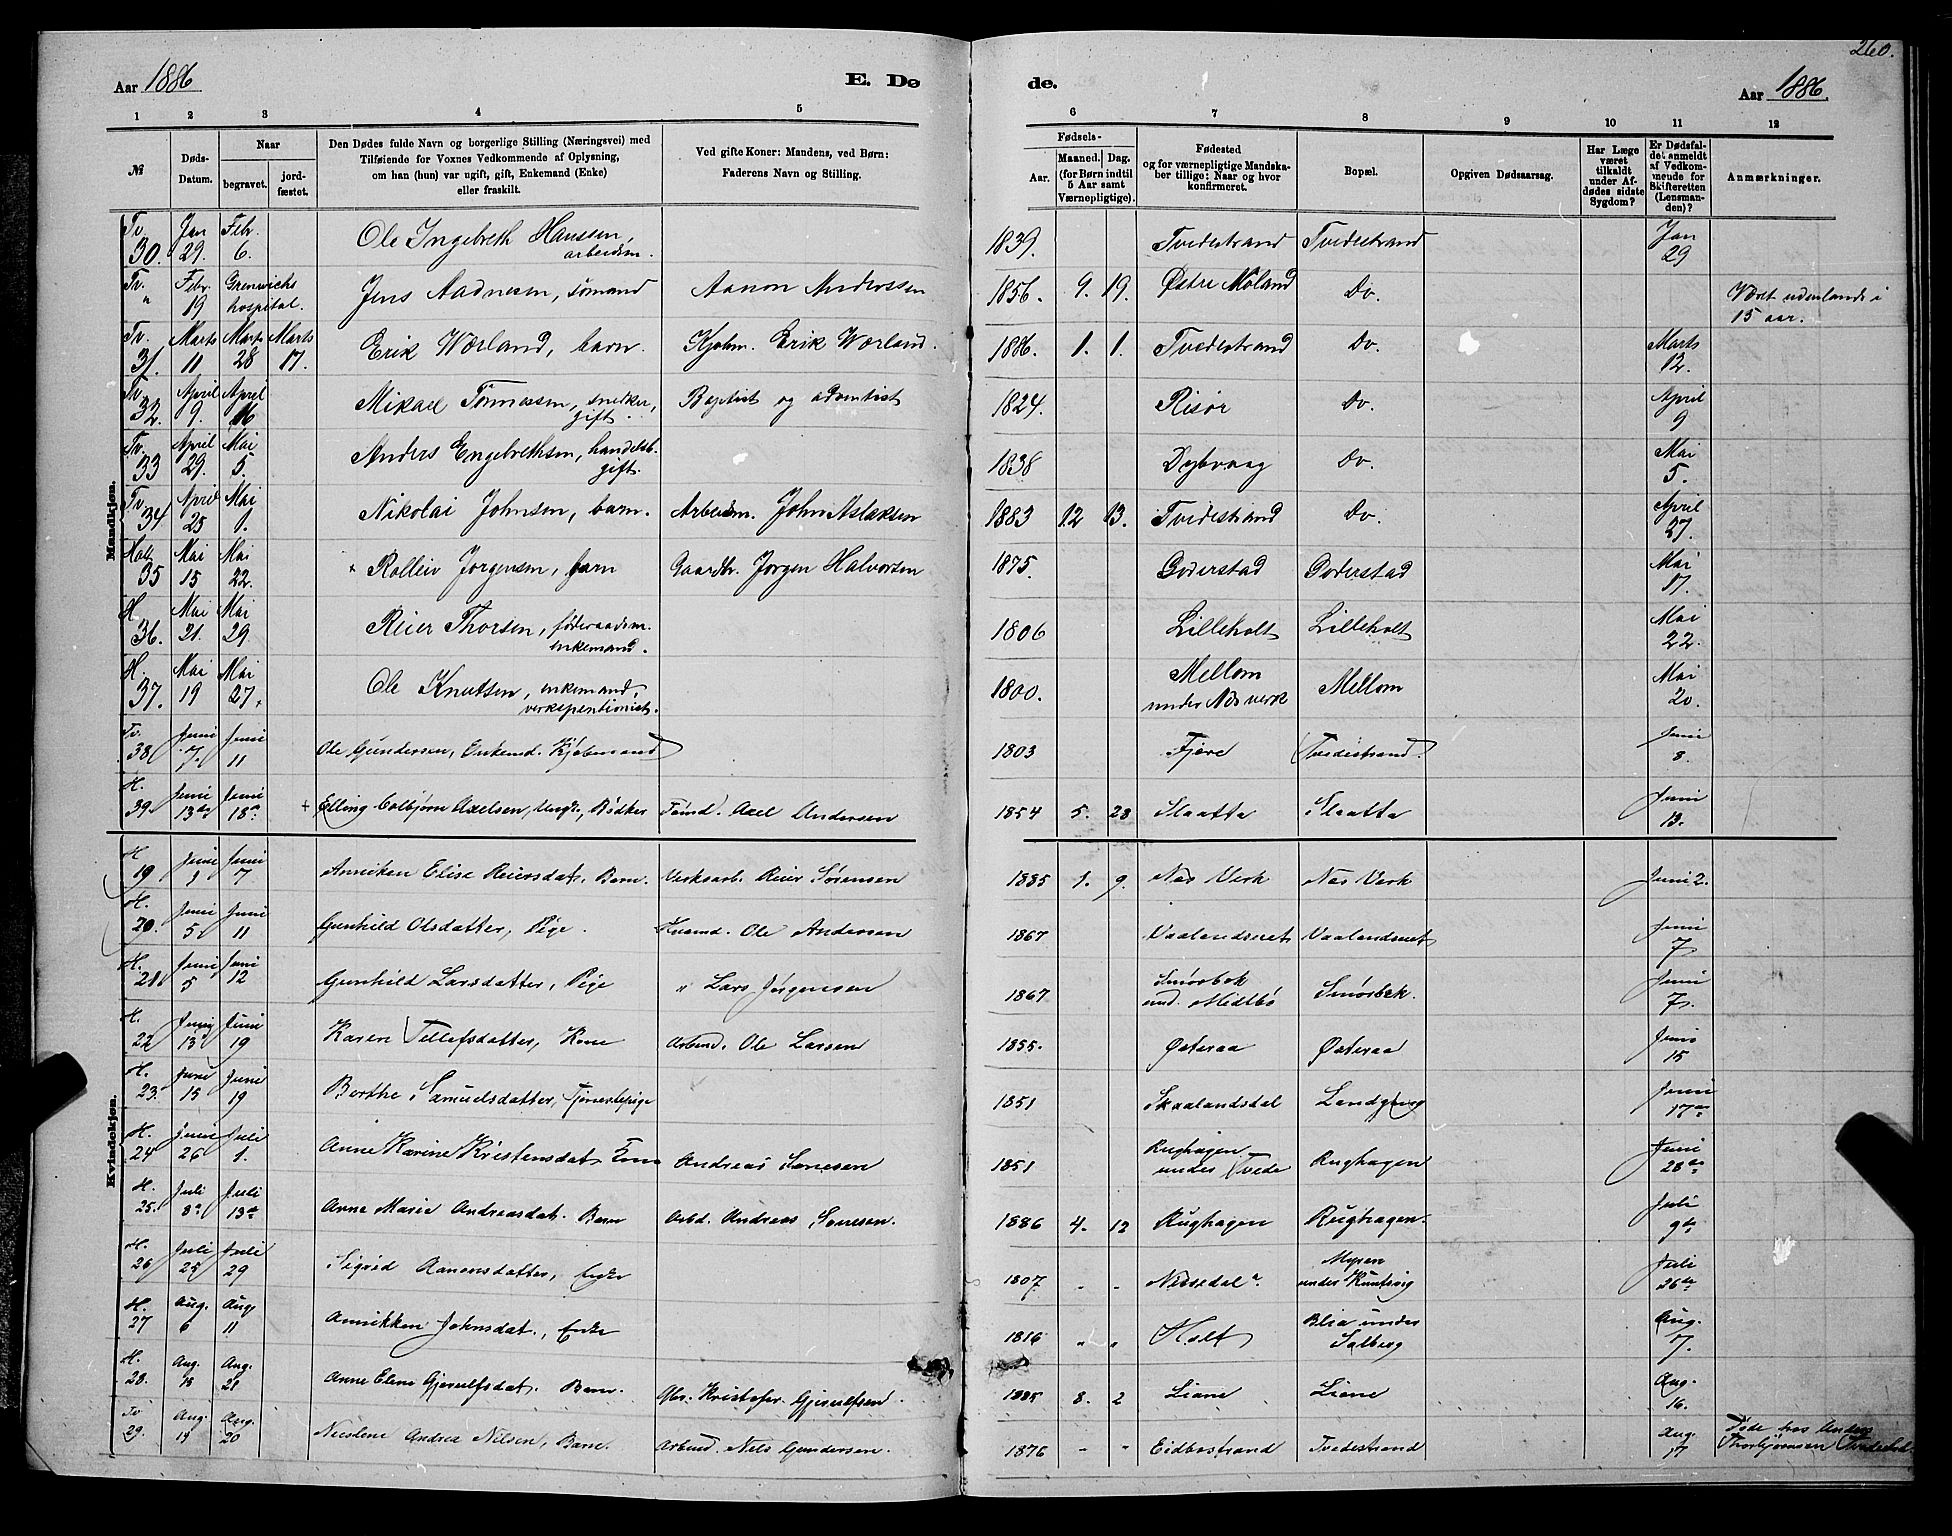 260.
Aar 1886
E. Dø
de.
Aar 1886.
1 2 3 4 5 6 7 8 9 10 11 12
№
Døds-
Datum.
Naar
begravet.
jord-
fæstet.
Den Dødes fulde Navn og borgerlige Stilling (Næringsvei) med
Tilføiende for Voxnes Vedkommende af Oplysning,
om han (hun) var ugift, gift, Enkemand (Enke)
eller fraskilt.
Ved gifte Koner: Mandens, ved Børn:
Faderens Navn og Stilling.
Fødsels-
Aar.
Maaned.
Dag.
(for Børn indtil
5 Aar samt
Værnepligtige).
Fødested
og for værnepligtige Mandska-
ber tillige: Naar og hvor
konfirmeret.
Bopæl.
Opgiven Dødsaarsag.
Har Læge
været
tilkaldt
under Af-
dødes sidste
Sygdom?
Er Dødsfal-
det anmeldt
af Vedkom-
mende for
Skifteretten
(Lensman-
den)?
Anmærkninger.
Mandkjøn.
Tv. 30. Jan 29. Febr. 6. Ole Ingebreth Hanssen, arbeidsm. 1839. Tvedestrand Tvedestrand Jan 29
Tv. " Febr. 19 Grenwichs hospital. Jens Aadnesen, sømand Aanon Anderssen 1856. 9. 19. Østre Moland Do. Været udenlands i 15 aar.
Tv. 31. Marts 11 Marts 28 Marts 17. Erik Wærland, barn. Kjøbm. Erik Wærland. 1886. 1. 1. Tvedestrand Do. Marts 12.
Tv. 32. April 9. April 16 Mikael Tønnessen, snedker, gift. Baptist og adventist 1824. Risør Do. April 9
Tv. 33 April 29. Mai 5. Anders Engebrethsen, handelsb. gift. 1838 Dybvaag Do. Mai 5.
Tv. 34 April 25 Mai 1. Nikolai Johnsen, barn. Arbeidsm. John Aslaksen 1883 12 13. Tvedestrand Do. April 27.
Hol. 35 Mai 15 Mai 22. Rolleiv Jørgensen, barn Gaardbr. Jørgen Halvorsen 1875. Goderstad Goderstad Mai 17.
H. 36. Mai 21. Mai 29. Reier Thorsen, føderaadsm. enkemand. 1806 Lilleholt Lilleholt Mai 22.
H. 37. Mai 19 Mai 27. Ole Knutsen, enkemand, verkspentionist. 1800. Mellom under Nes verk Mellom Mai 20.
Tv. 38. Juni 7. Juni 11 Ole Gundersen, Enkemd. Kjøbmand 1803 Fjære Tvedestrand. Juni 8.
H. 39. Juni 13de Juni 18de + Elling Colbjørn Axelsen, Ungk., Bødker Tømd. Axel Andersen 1854 5. 28 Slaatta Slaatta Juni 13.
Kvindekjøn.
H. 19. Juni 1 Juni 7 Anniken Elise Reiersdat. Barn. Verksarb. Reier Sørensen 1885 1. 9. Nes Verk Nes Verk Juni 2.
H. 20. Juni 5 Juni 11 Gunhild Olsdatter, Pige. Husmd. Ole Andersen 1867 Vaalandsret Vaalandsret Juni 7
H. 21. Juni 5 Juni 12 Gunhild Larsdatter, Pige " Lars Jørgensen 1867 Smørbek und. Midtbø Smørbek. Juni 7.
H. 22 Juni 13 Juni 19 Karen Tellefsdatter, Kone Arbmd. Ole Larsen 1855. Østeraa Østeraa Juni 15
H. 23. Juni 15 Juni 19 Berthe Samuelsdatter, Tjenestepige 1851 Skaalandsdal Landgberg Juni 17de
H. 24 Juni 26 Juli 1. Anne Karine Kristensdat. Kone Andreas Sørensen 1851 Rughagen under Tvede Rughagen Juni 28de
H. 25. Juli 8de Juli 13de Anne Marie Andreasdat. Barn Arbd. Andreas Sørensen. 1886 4. 12 Rughagen Rughagen. Juli 9de
H. 26 Juli 25 Juli 29 Sigrid Aanensdatter, Enke 1807. " " Myren under Juli 26de
H. 27 Aug. 6 Aug. 11 Annikken Johnsdat., Enke 1816 " " Holt Blia under Solberg Aug. 7.
H. 28. Aug. 15 Aug. 21 Anne Elene Gjerulfsdat. Barn. Gbr. Kristofer Gjerulfsen. 1885 8. 2 Liane Liane Aug. 16.
Tv 29. Aug. 14 Aug. 20 Andrea Nilsen, Barn. Arbmd. Nels Gundersen. 1876 " " Eidbostrand Tvedestrand Aug. 17 hos Anders Thorbjørnsen